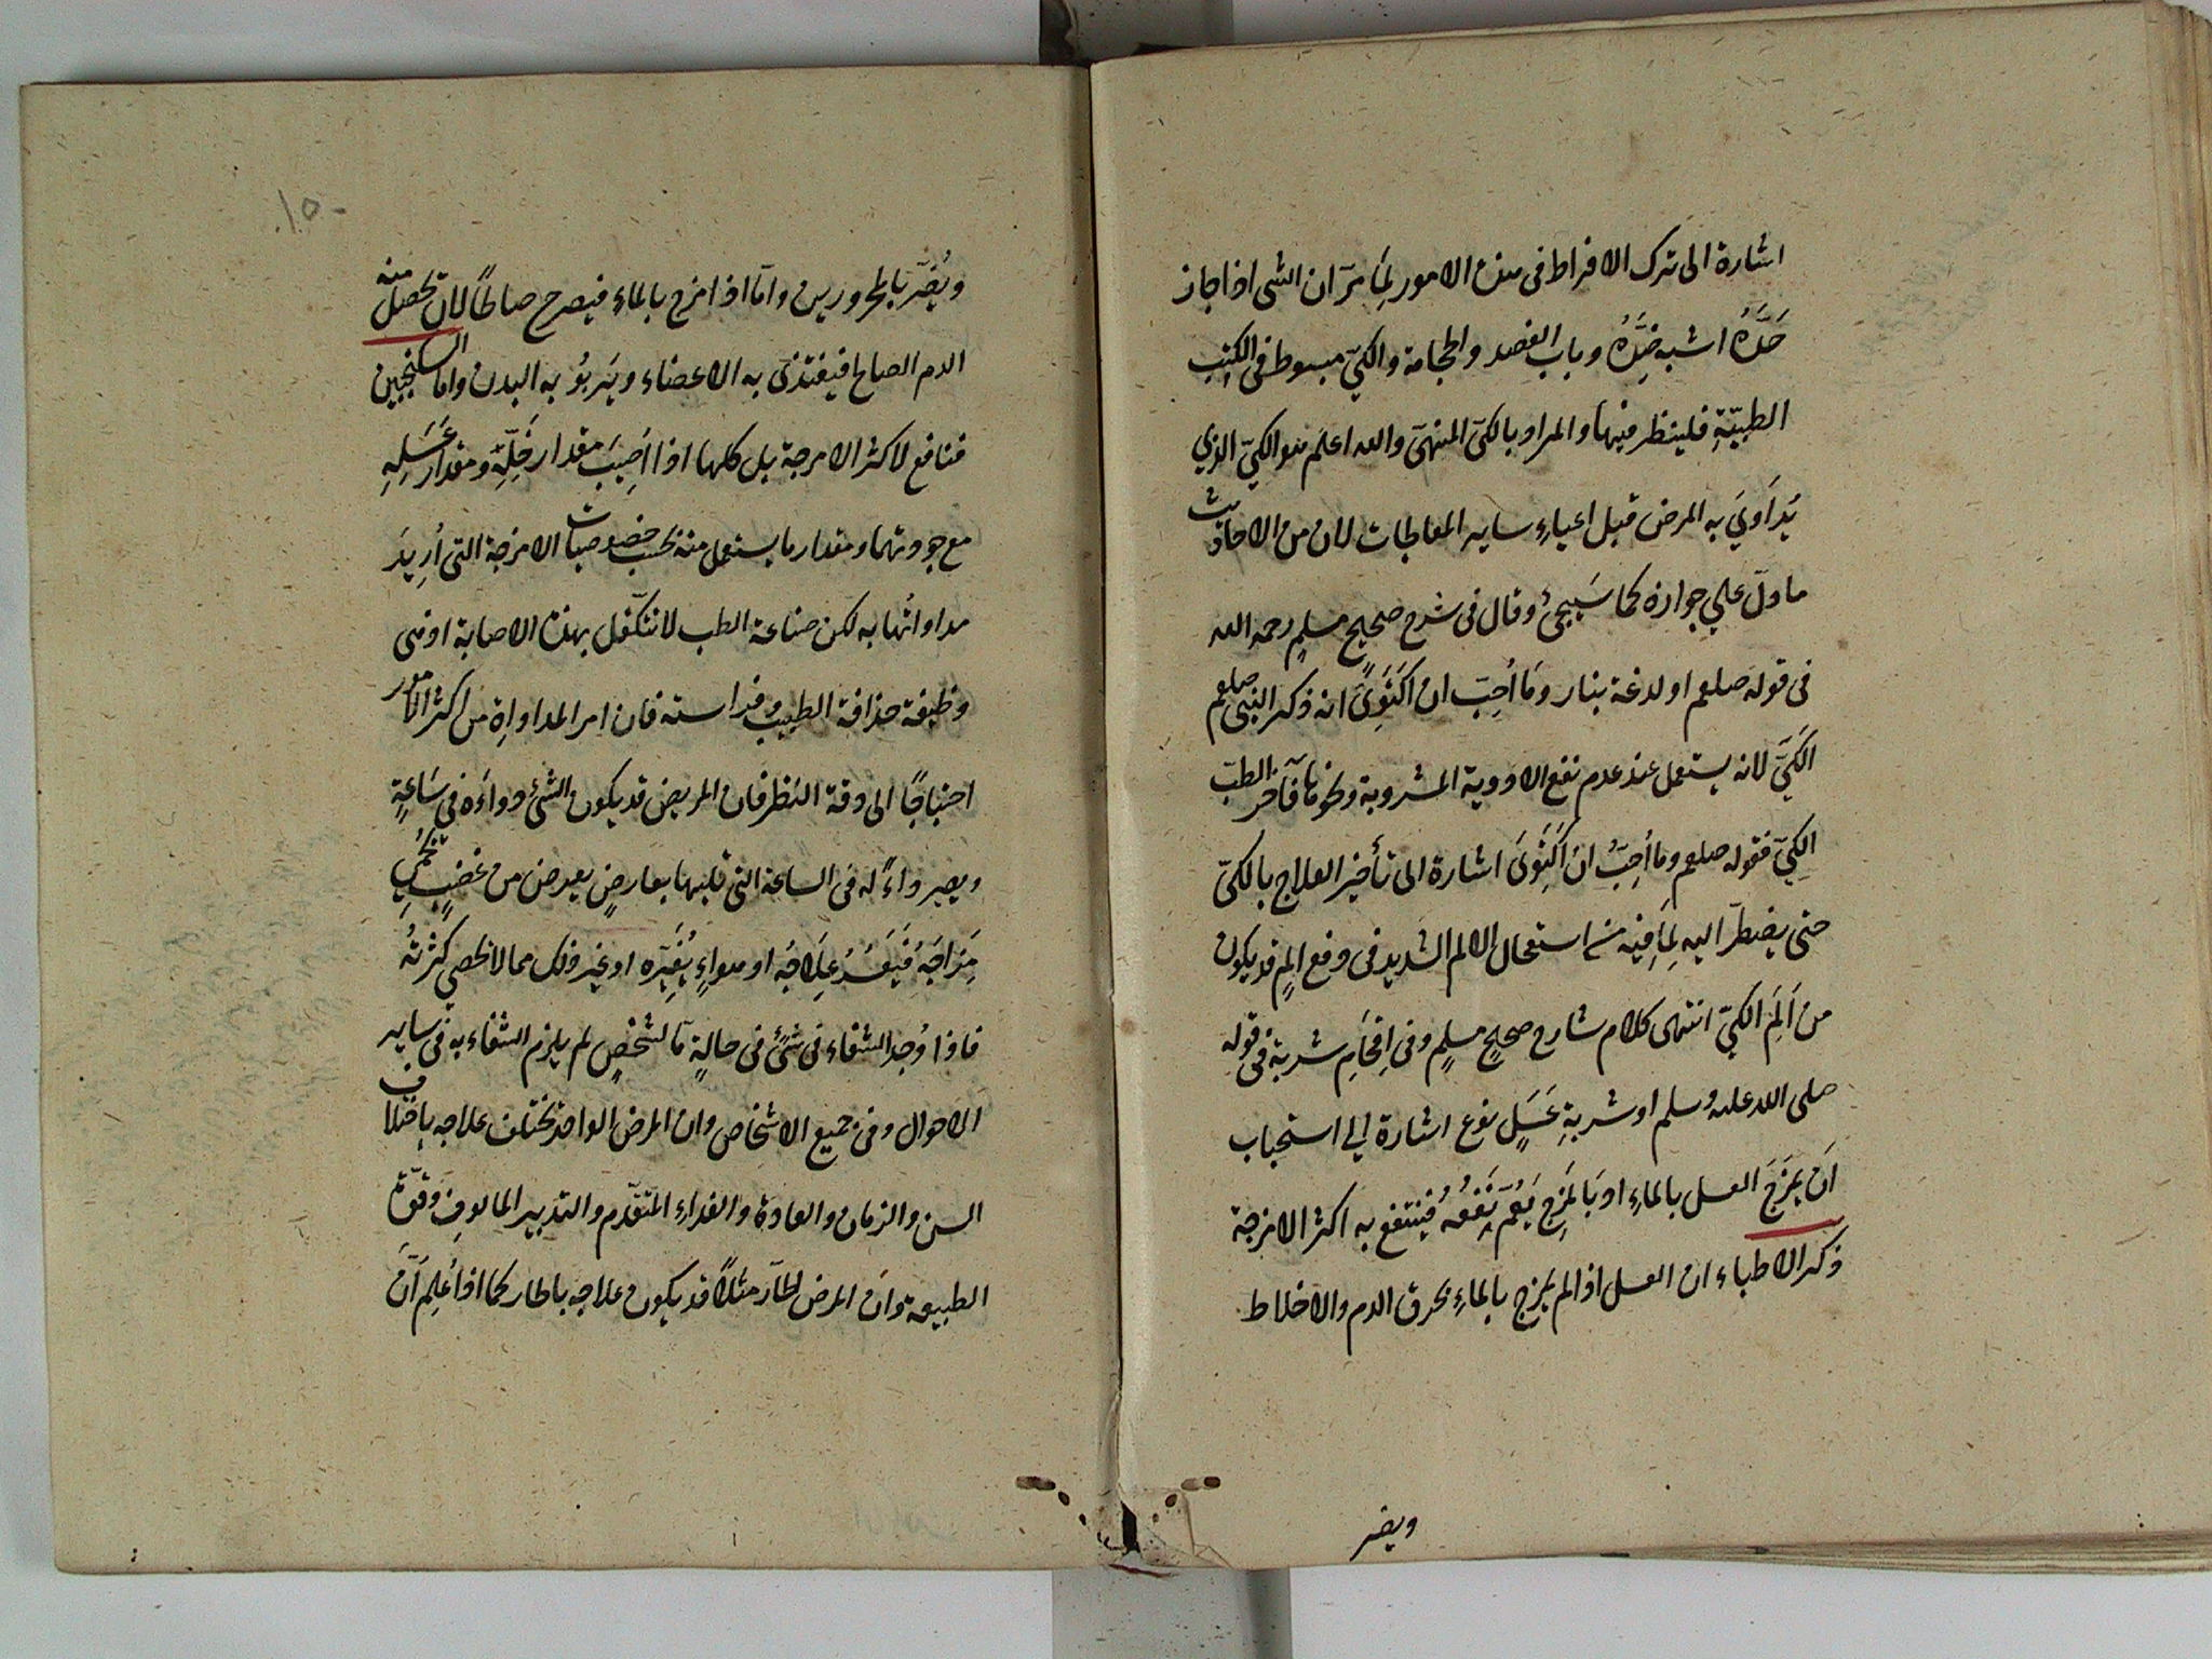 اشارة الى ترك الافراط فى هذه الامور لِمَا مرّ ان الشى اذا جاز
حَدَّهُ اشبه ضِدَّهُ وباب الفصد والحجامة والكىّ مبسوط فى الكتب
الطبيّةِ فلينظر فيها والمراد بالكىّ المنهىّ والله اعلم هو الكىّ الذي
يُدَاوَيَ به المرض قبل اعياءِ ساير المعالجات لان من الاحاديث
ما دلّ علي جوازه كما سَيجئ وقال فى شرح صحيح مسلمٍ رحمه الله
فى قوله صلعم او لدغة بنار وَمَا اُحِبّ ان اكتَوِىَ انه ذكر النبى صلعم
الكَىَّ لانه يستعمل عند عدم نفع الادوية المشروبة ونحوها فآخر الطبّ
الكىّ فقوله صلعم وما اُحِبُّ ان اَكْتَوِىَ اشارة الى تأخير العلاج بالكىّ
حتى يضطرّ اليه لِمَا فيه من استعمال الالم الشديد فى دفع المٍ قد يكون
من اَلَمِ الكىّ انتهى كلام شارح صحيح مسلمٍ وفى اِقحَامِ شربة فى قوله
صلى الله عليه وسلم او شربةِ عَسَلٍ نوع اشارة الي استحباب
اَن يمزَجَ العسل بالماءِ اوبَالمَزجِ يَعُمّ نَفعُهُ فينتفع به اكثر الامزجة
ذكر الاطباء ان العسل اذا لم يمزج بالماءِ يحرق الدم والاخلاط
ويضر
١٥٠
ويُضرّ بالمحرورين وامّا اذا مزج بالماء فيصرح صالحًا لان تحصل منه
الدم الصالح فيغتذى به الاعضاء ويَربُو به البدن واما السكنجبين
فنافع لاكثر الامزجة بل كلها اذا اُصِيبَ مقدار خَلِّهِ ومقدار عَسَلِهِ
مع جودتهما ومقدار ما يستعمل منه بحسب خصوصيات الامزجة التى اُرِيدَ
مداواتُها به لكن صناعة الطب لا تتكّفل بهذه الاصابة اذ هى
وظيفة حذاقة الطبيب وفراسته فان امر المداواةِ من اكثر الامور
احتياجًا الى دقة النظر فان المريض قد يكون الشئ دواءَه فى سَاعةٍ
ويصير داءً له فى الساعة التى تليها بعارضٍ يعرض من غضبٍ يُحمِى
مَزاجَهُ فَيَفسُدُ عِلَاجَهُ او هواءٍ يُغَيّره او غير ذلك مما لا تحصى كثرتُه
فاذا وُجد الشفاء فى شئٍ فى حالةٍ مّا لشخصٍ لم يلزم الشفاء به فى ساير
الاحوال وفى جميع الاشخاص وان المرض الواحد يختلف علاجه باختلاف
السن والزمان والعادة والغداءِ المتقدّم والتدبير المالوفِ وقوّة
الطبيعة وان المرض الحارّ مثلاً قد يكون علاجه بالحار كما اذا عُلِمَ انّ